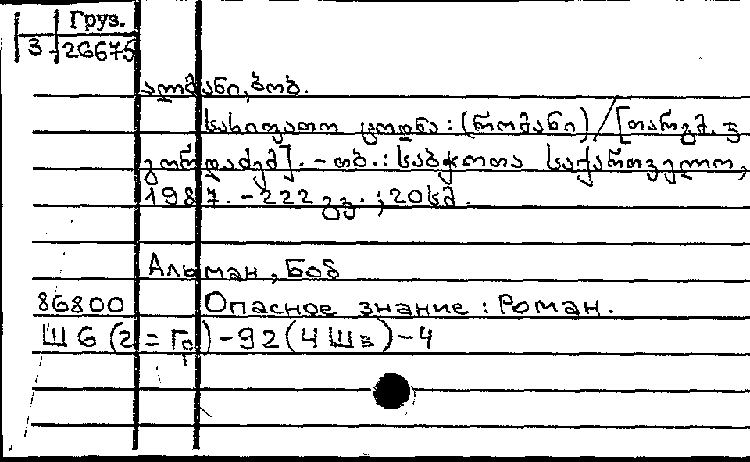 Груз.
3-26675
ალმანი, ბობ.
სახიფათო ცოდნა : (რომანი) / [თარგმ. ვ
გორდაძემ]. - თბ. : საბჭოთა საქართველო,
1987. - 222 გვ. ; 20 სმ.
Альман, Боб
86800 Опасное знание : Роман.
Ш6(2=Гр)-92(4Шв)-4